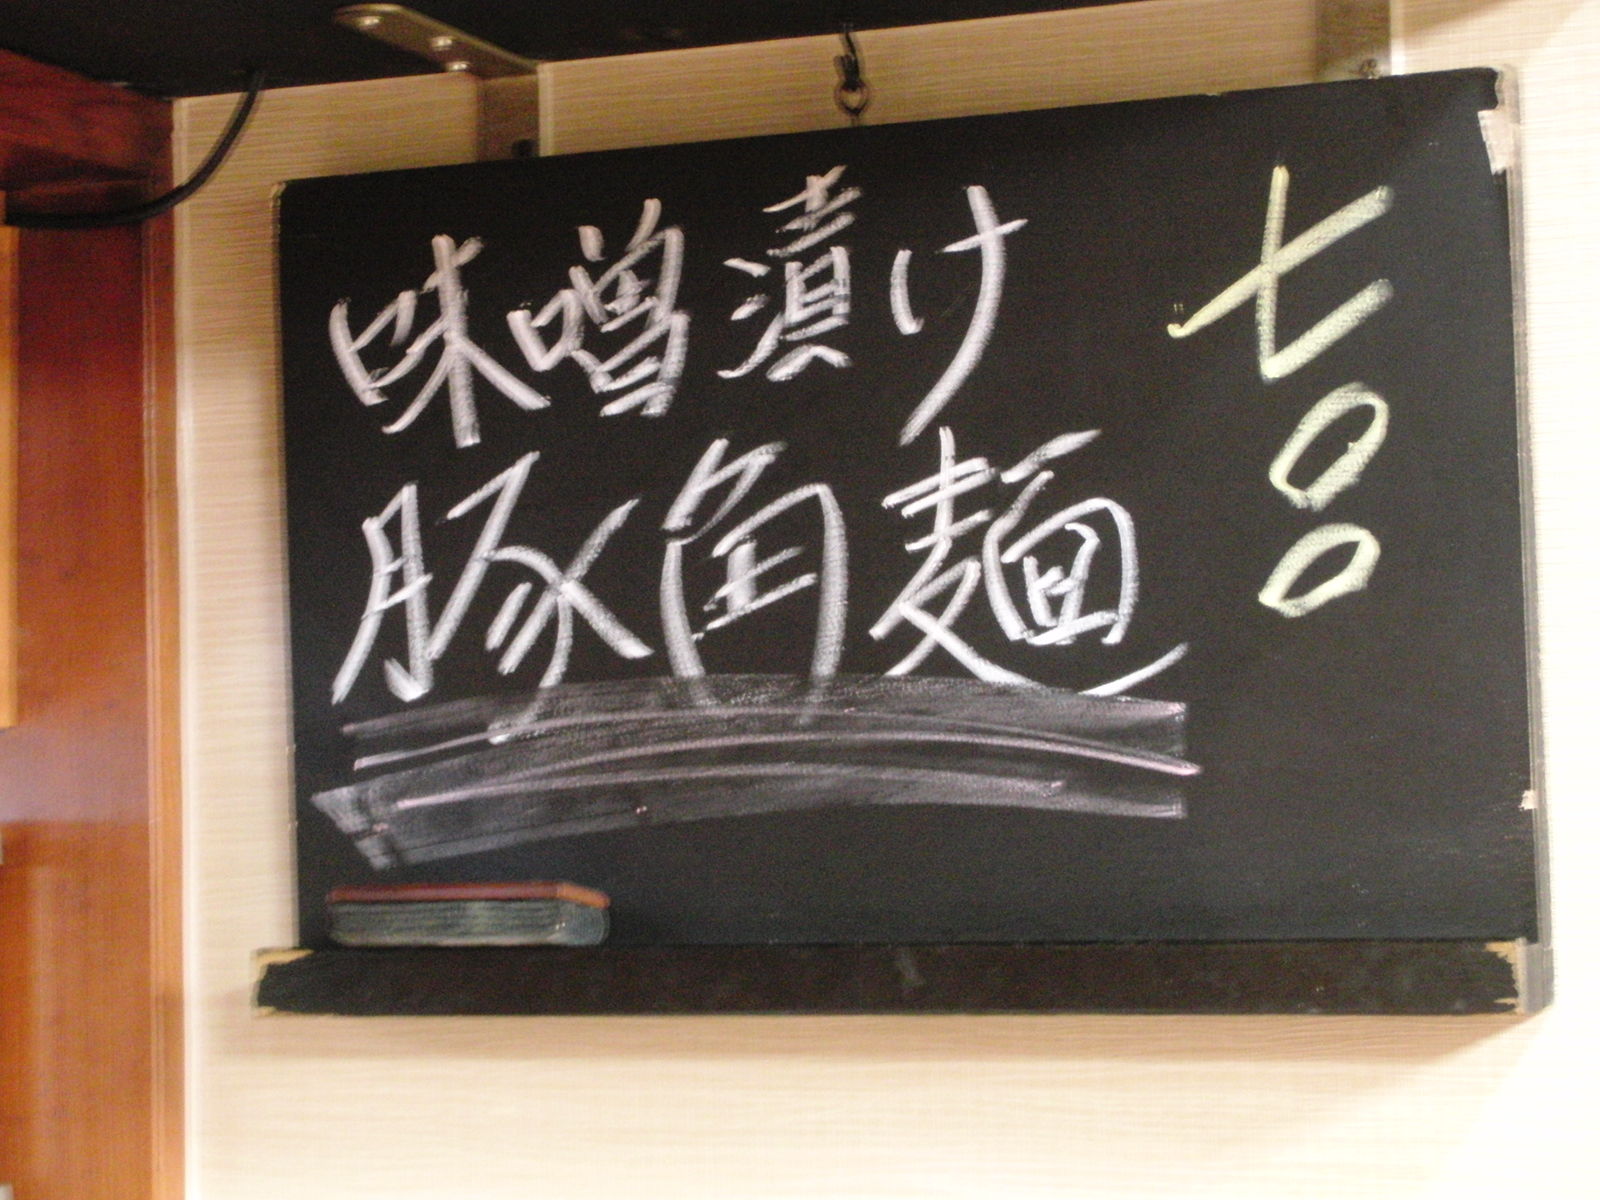 味噌漬け
豚角麺
七〇〇